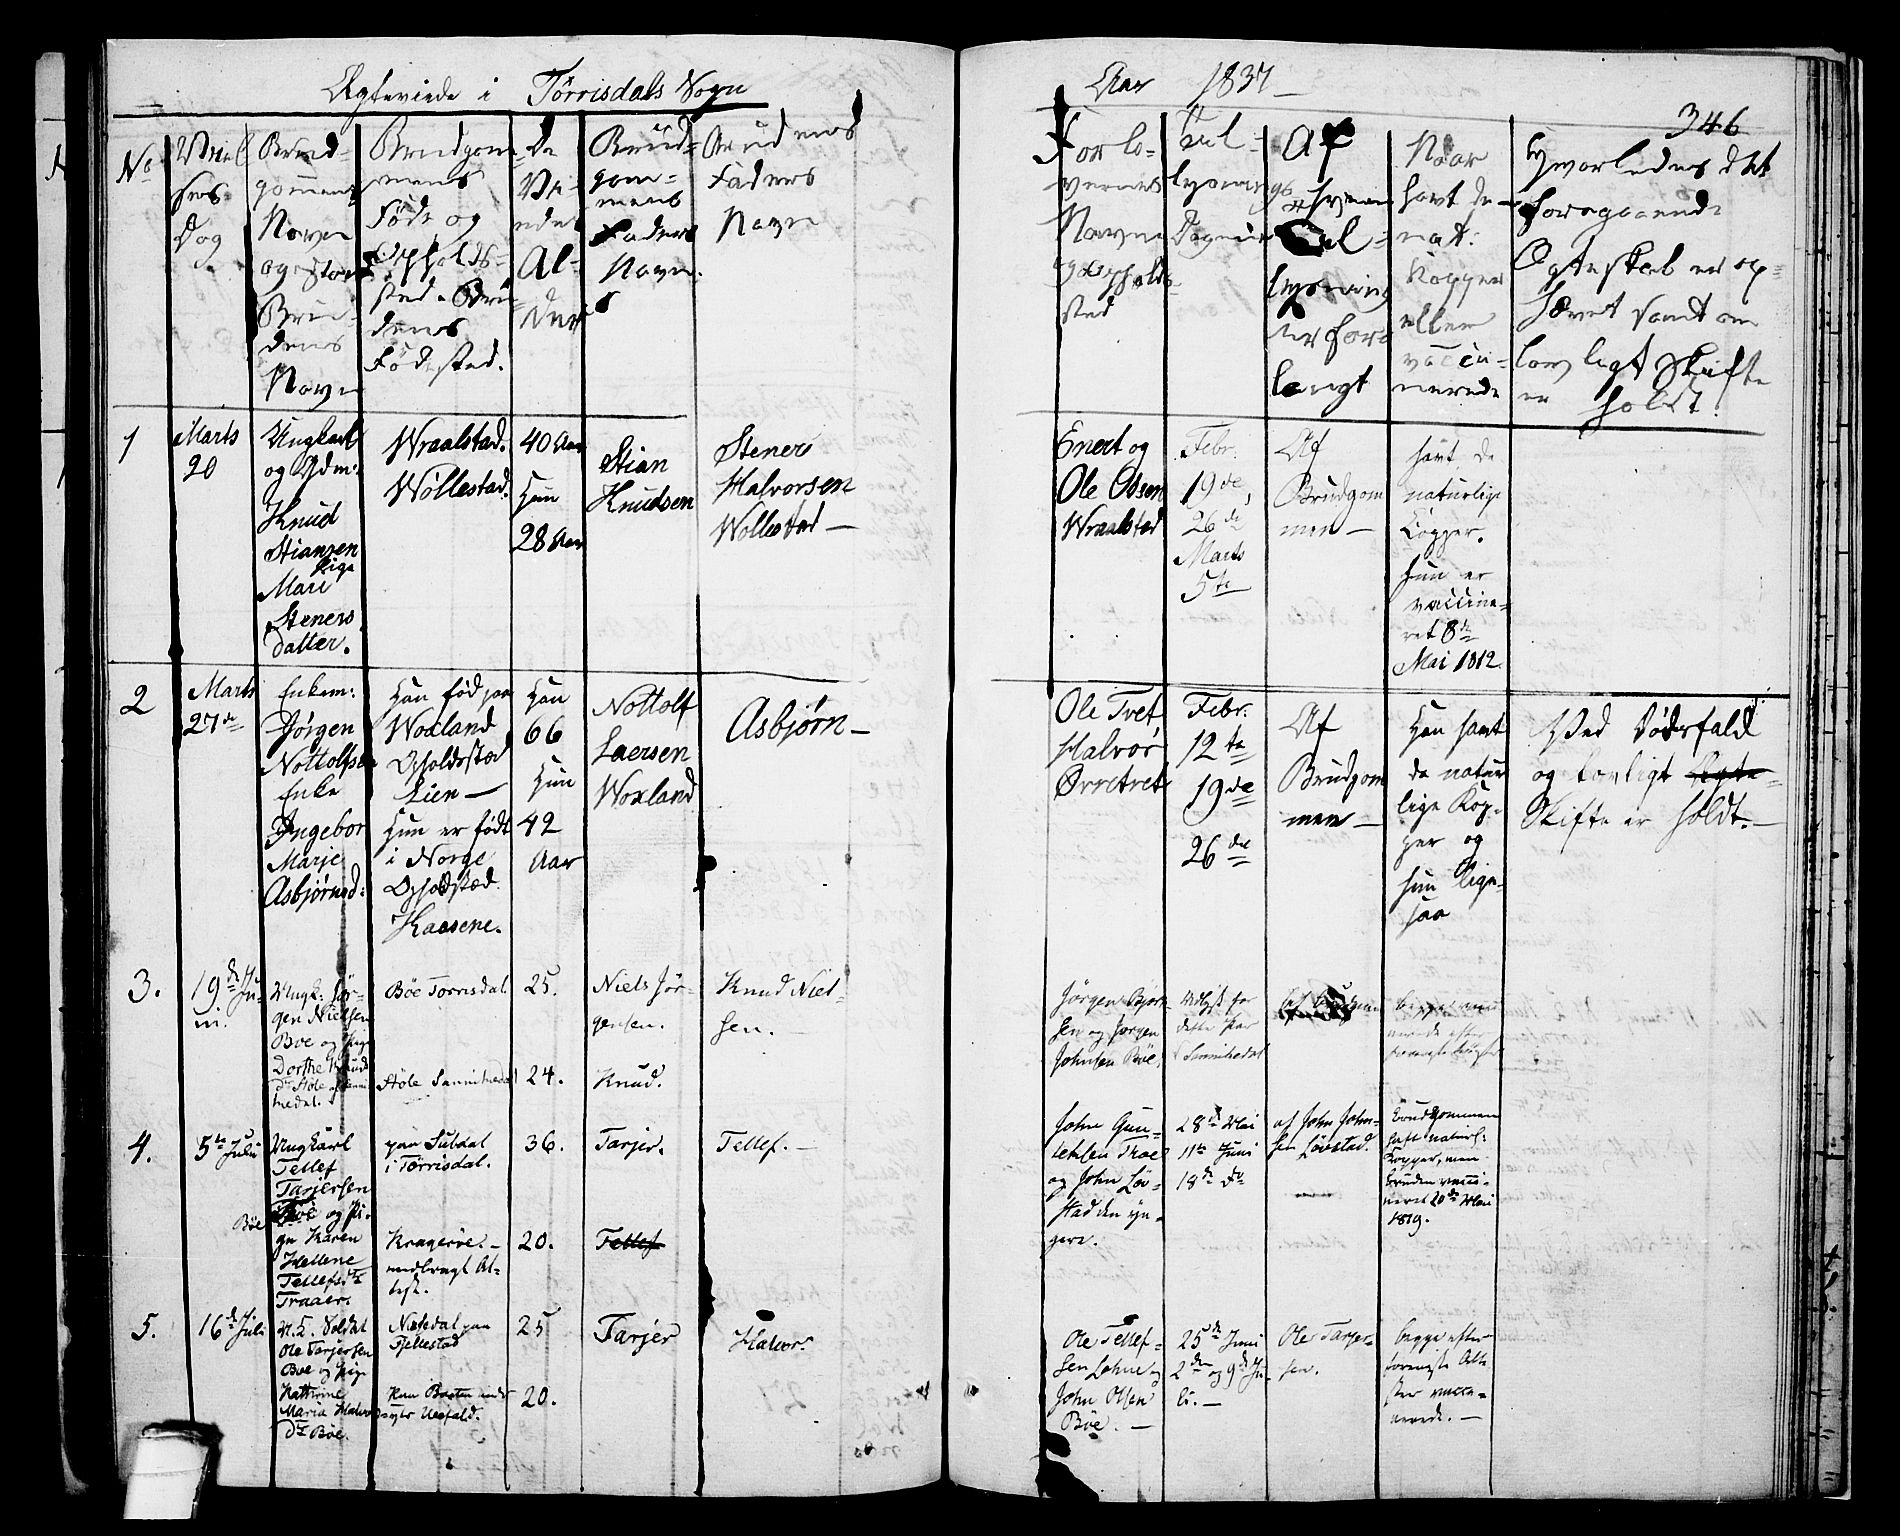 Ægteviede i Tørrisdals Sogn
Aar 1837
346
No
Vielsens
Dag
Brud-
gommens
Navn
og
Bru-
dens
Navn
Brudgom-
mens
Føde og
Opholds-
sted. Bru-
dens
Fødested.
De
Vi-
edes
Al-
der
Brud-
gom-
mens
Faders
Navn
Brudens
Faders
Navn
Forlo-
vernes
Navne
og Opholds-
sted
Til-
lysnings
Dagene
Af
hvem
Til-
lysning
er for-
langt
Naar
havt de
nat:
Kopper
eller
vacci-
nerede
Hvorledes det
foregaaende
Ægteskab er op-
hævet samt om
lovligt Skifte
er holdt.
1
Marts
20
Ungkarl
og Gdm:
Knud
Stiansen
Pige
Mari
Steners
datter.
Wraalstad.
Wollestad.
40 Aar
Hun
28 Aar
Stian
Knudsen
Steners
Halvorsen
Wollestad —
Enert og
Ole Olsen
Wraalstad
Febr.
19de
26de
Marts
5te
Af
Brudgom
men —
havt de
naturlige
Kopper.
hun er
vaccine-
ret 8de
Mai 1812
2
Marts
27de
Enkem:
Jørgen
Nottolfsen
Enke
Ingebor
Marje
Asbjørnsd:
Han fød paa
Woxland
Opholdssted
Lien —
Hun er født
i Norge
Opholdsted.
Kaasene.
Han
66
Hun
42
Aar
Nottolf
Laersen
Woxland
Asbjørn —
Ole Tvet
Halvor
Ørvetvet
Febr.
12te
19de
26de
Af
Brudgom
men —
Han havt
de natur
lige Kop-
per og
hun lige-
saa
Ved Dødsfald
og lovligt Ægte-
Skifte er holdt. —
3.
19de Ju-
ni.
Ungk: Jør-
gen Nielsen
Boe og Pige
Dorthe Knuds
dr Støle af Sanni-
kedal.
Böe Torrisdal.
Støle Sannikedal
25.
24.
Niels Jør-
gensen.
Knud.
Knud Niel-
sen. —
Jørgen Bjørn-
sen og Jørgen
Johnsen Böe.
dette Par
i Sannikedal
begge vacci-
nerede efter
4.
5te Julii
Ungkarl
Tellef
Tarjersen
Böe og Pi-
ge Karen
Hellene
Tellefsdtr
Traaer.
paa Suldal
i Tørrisdal.
Kragerøe. —
medbragt At-
test.
36.
20.
Tarjer.
Tellef
Tellef. —
John Gun-
leksen Traae
og John Löv-
stad den yn-
gere.
28de Mai
11te Juni
18de do
af John John-
sen Lövstad.
Brudgommen
haft naturl:
Kopper, men
Bruden vacci-
neret 20de Mai
1819.
5.
16de Juli
N. S. Soldat
Ole Tarjersen
Boe og Pige
Kathrine
Maria Halvors
dr Böe.
Nisedal paa
Fjellestad
25
20.
Tarjer
Halvor.
Ole Tellef-
sen Lohne og
John Olsen
Böe. —
25de Juni
2den og 9de Ju-
li. —
Ole Tarjer-
sen.
begge efter
foreviste Atte
ster vacci-
nerede. —